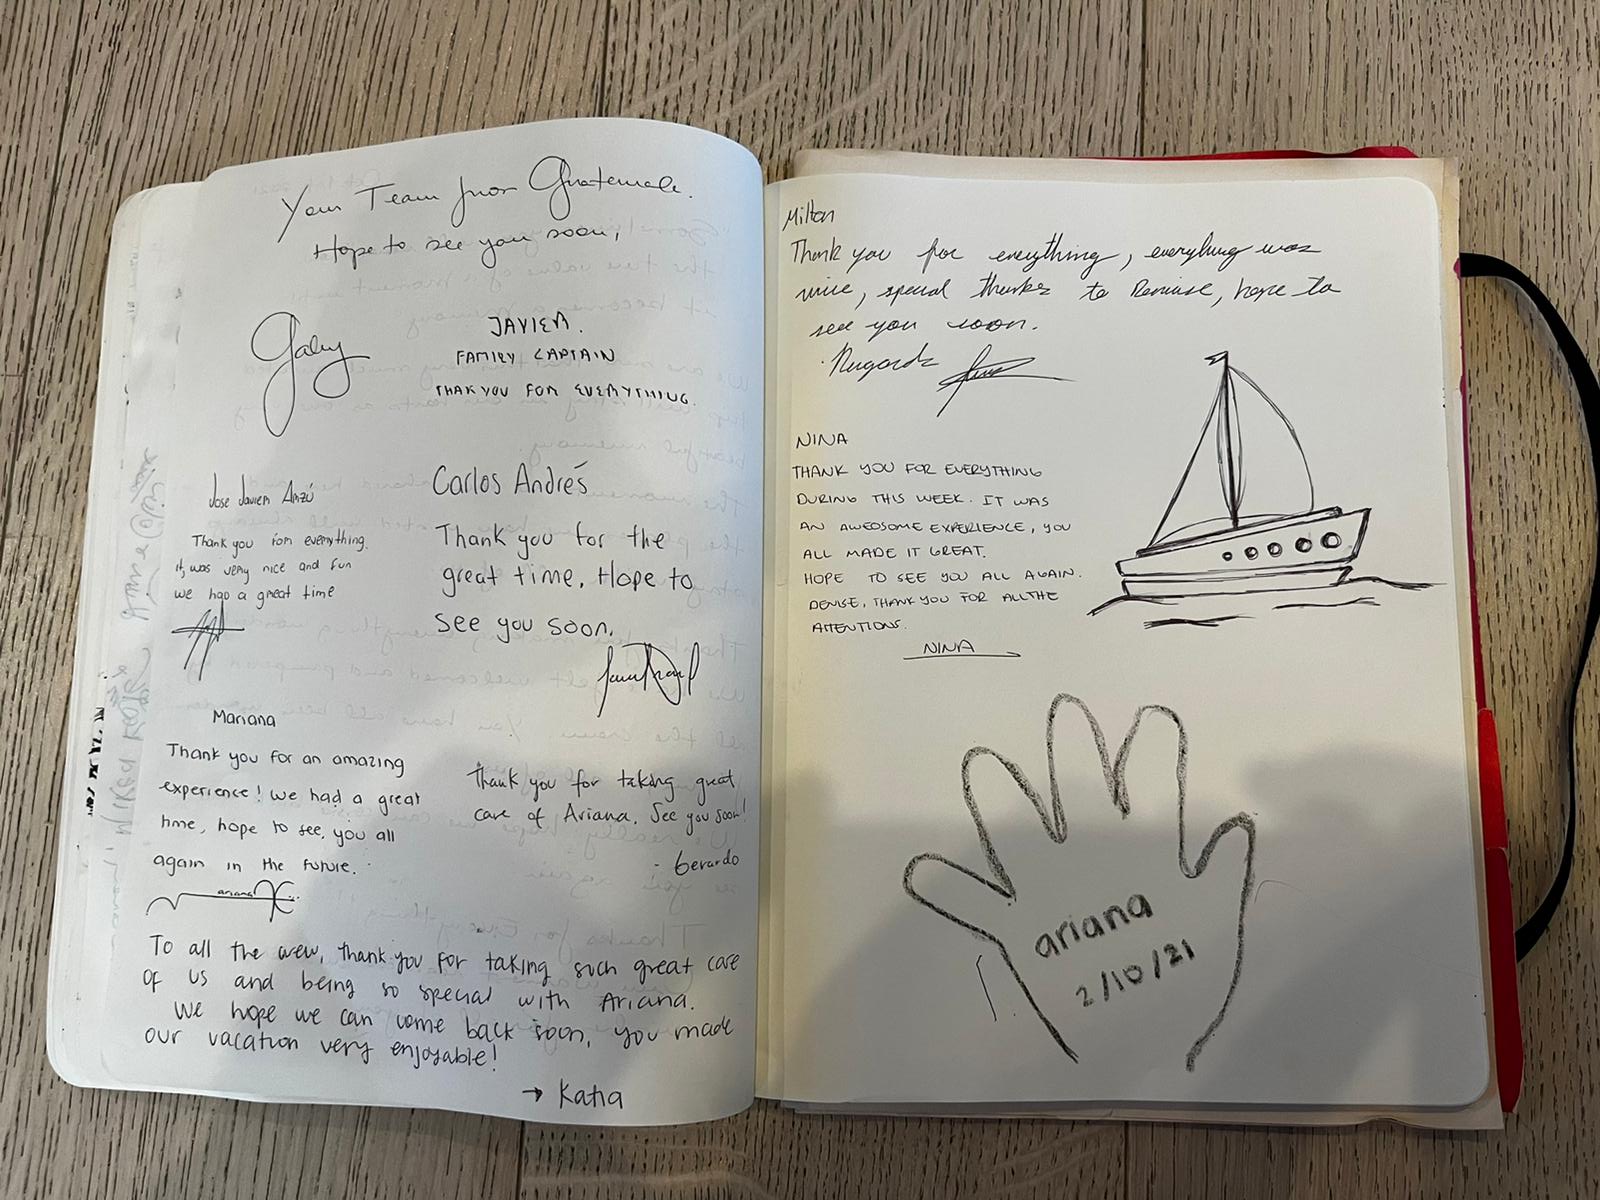 Your Team from Guatemala.
Hope to see you soon,
Gaby
JAVIER.
FAMILY CAPTAIN
THANK YOU FOR EVERYTHING.
Jose Javier Arzú
Thank you forn everything.
it, was very nice and fun
we had a great time
Carlos Andrés
Thank you for the
great time. Hope to
see you soon.
Mariana
Thank you for an amazing
experience! We had a great
time, hope to see you all
again in the future.
ariana
Thank you for taking great
care of Ariana. See you soon!
- Gerardo
To all the crew, thank you for taking such great care
of us and being so special with Ariana.
We hope we can come back soon, you made
our vacation very enjoyable!
→ Katia
Milton
Thank you for everything, everything was
nice, special thanks to Denisse, hope to
see you soon.
Regards
NINA
THANK YOU FOR EVERYTHING
DURING THIS WEEK. IT WAS
AN AWEOSOME EXPERIENCE, YOU
ALL MADE IT GREAT.
HOPE TO SEE YOU ALL AGAIN.
DENISE, THANK YOU FOR ALL THE
ATTENTIONS.
NINA
ariana
2/10/21